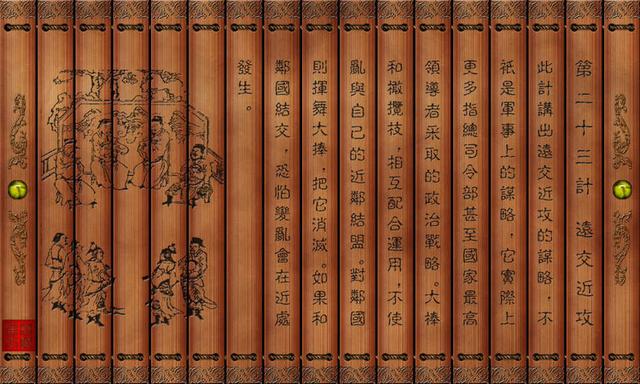 第二十三計　遠交近攻
此計講出遠交近攻的謀略，不
祇是軍事上的謀略，它實際上
更多指總司令部甚至國家最高
領導者采取的政治戰略。大棒
和橄欖技，相互配合運用，不使
亂與自己的近鄰結盟。對鄰國
則揮舞大捧，把它消滅。如果和
鄰國結交，恐怕變亂會在近處
發生。